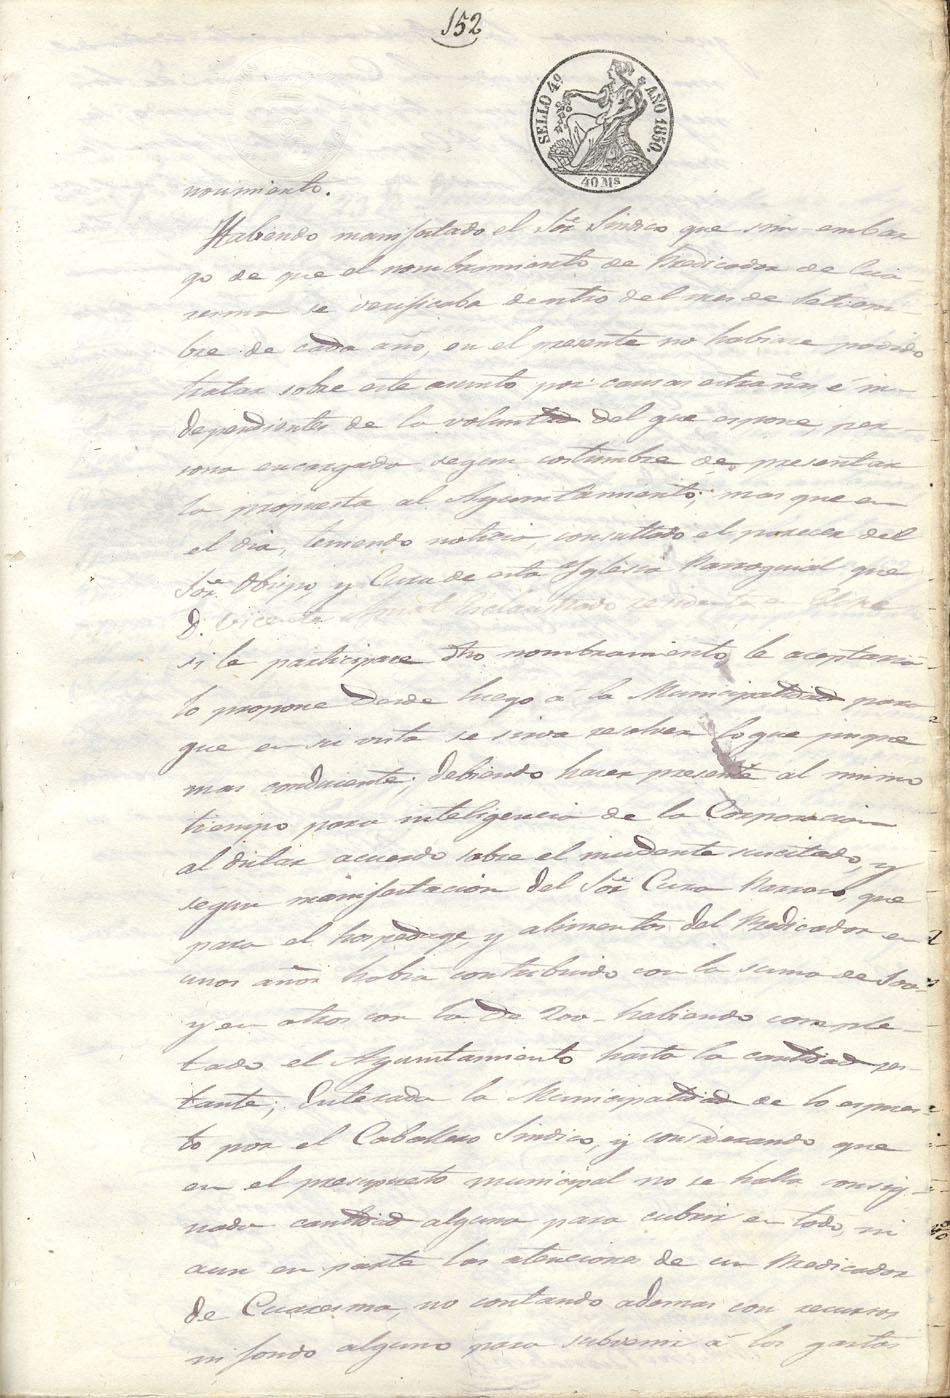 152
SELLO 4º AÑO 1850.
40 Ms
nocimiento.
Habiendo manifestado el Sor Sindico que sin embar
go de que el nombramiento de Predicador de Cua
resma se verificaba dentro del mes de Setiem-
bre de cada año, en el presente no habia podido
tratar sobre este asunto por causas estrañas é in-
dependientes de la voluntad del que espone, per-
sona encargada segun costumbre de presentar
la propuesta al Ayuntamiento; mas que en
el dia, teniendo noticia, consultado el parecer del
Sor Obispo y Cura de esta Yglesia Parroquial que
D. Vicente
si le participare dho nombramiento le aceptaria
lo propone desde luego á la Municipalidad para
que en su vista se sirva resolver lo que juzgue
mas conducente; debiendo hacer presente al mismo
tiempo para inteligencia de la Corporacion
al dictar acuerdo sobre el incidente suscitado, y
segun manifestacion del Sor Cura Parroco, que
para el hospedage y alimentos del Predicador en
unos años habia contribuido con la suma de 300-
y en otros con la de 200- habiendo comple-
tado el Ayuntamiento hasta la cantidad res-
tante; Enterada la Municipalidad de lo espues-
to por el Caballero Sindico, y considerando que
en el presupuesto municipal no se halla consig-
nada cantidad alguna para cubrir en todo, ni
aun en parte las atenciones de un Predicador
de Cuaresma, no contando ademas con recursos
ni fondo alguno para subvenir á los gastos